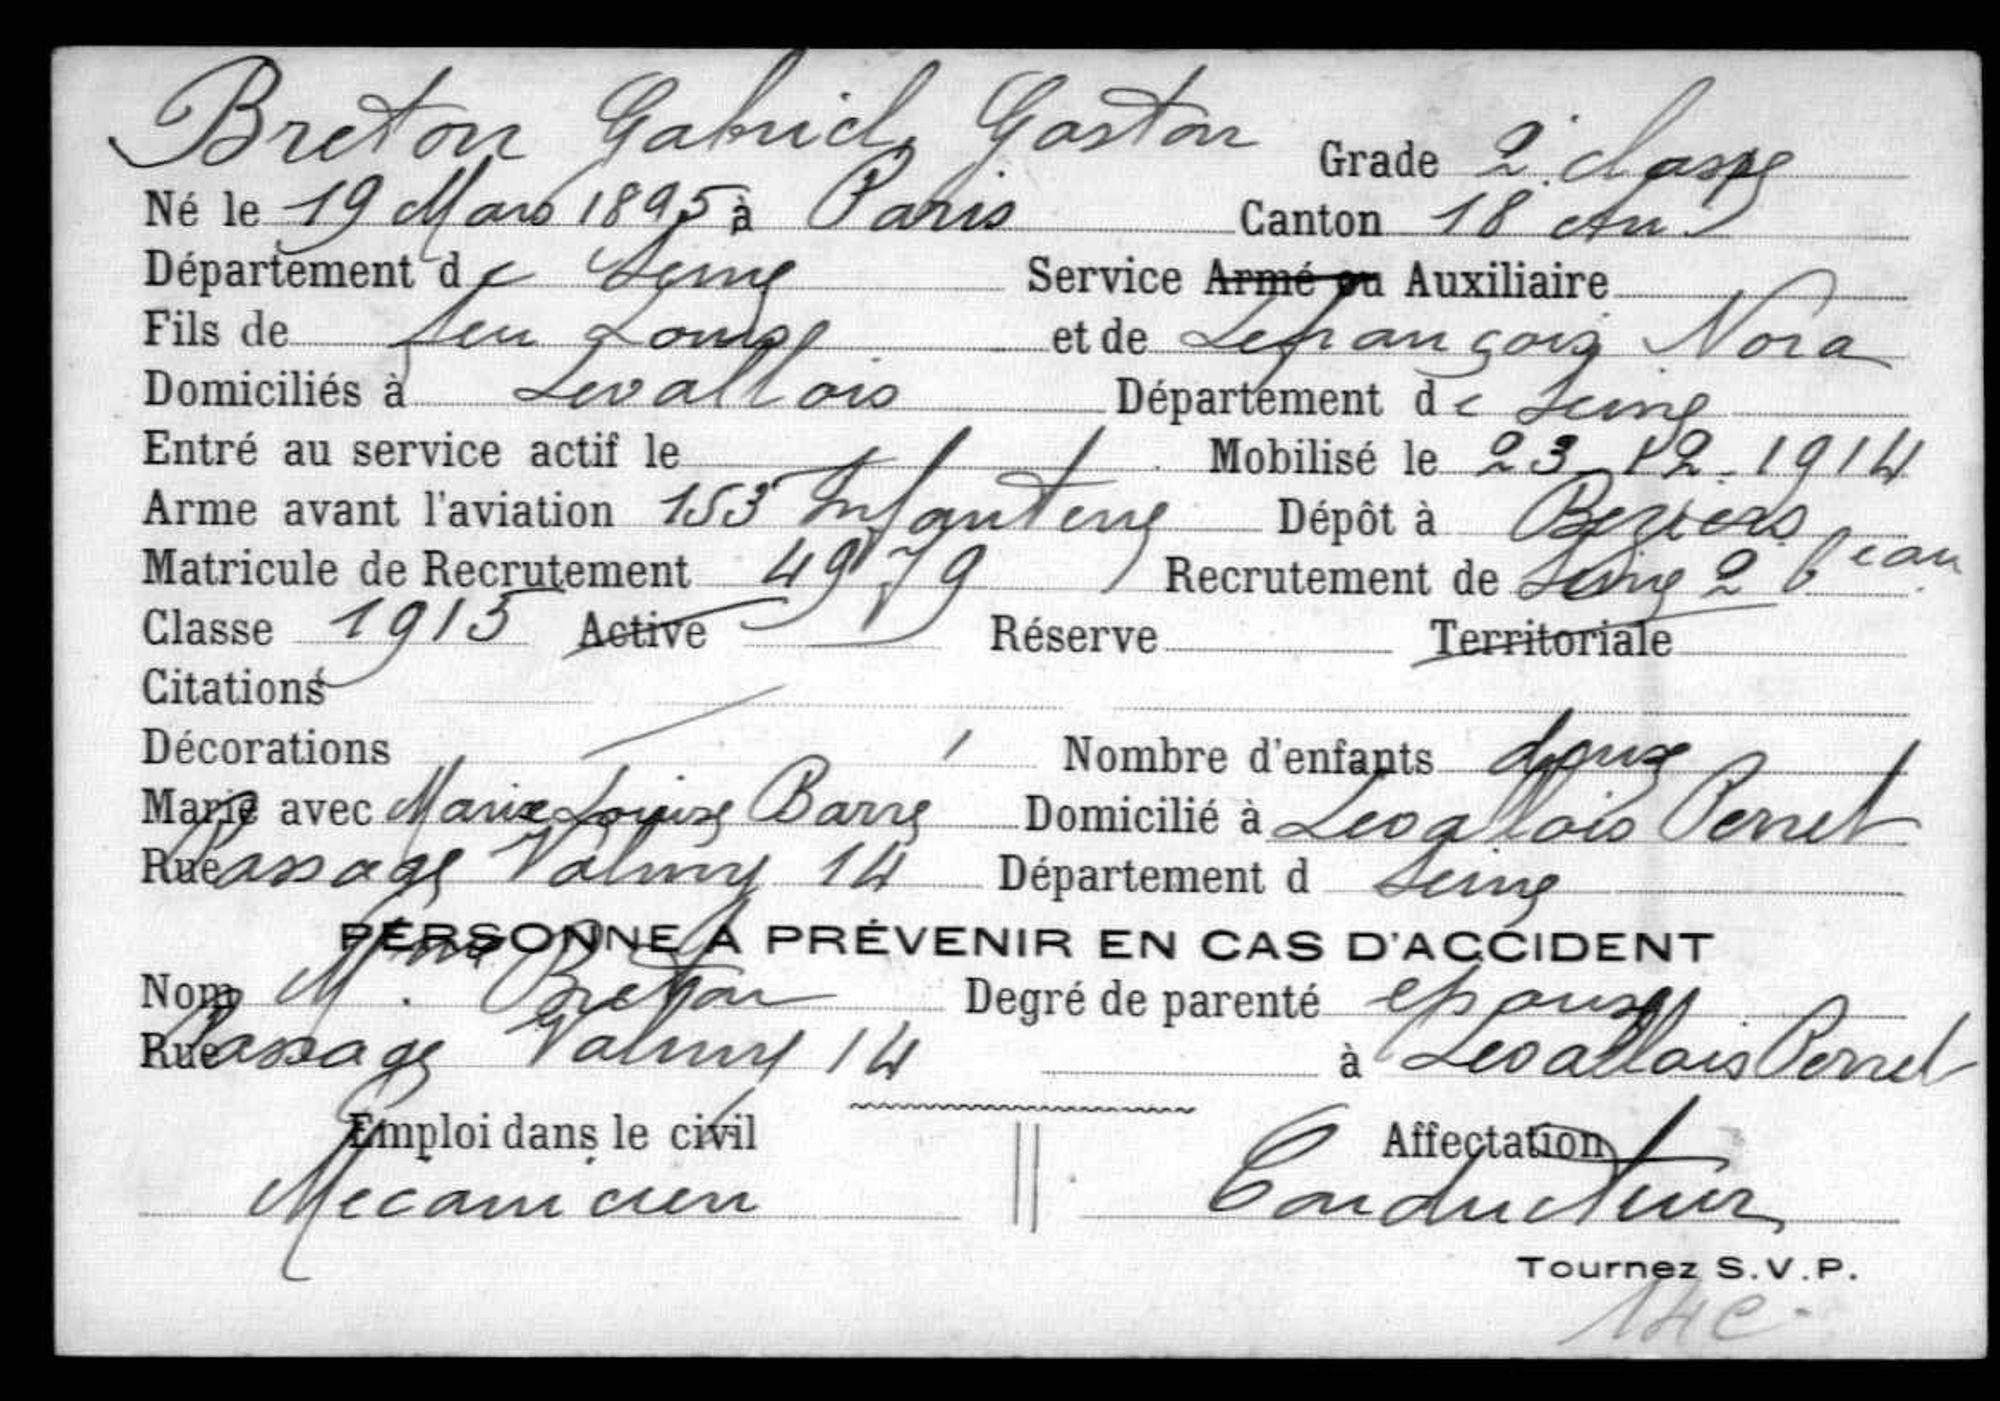 Breton Gabriel Gaston Grade 2e classe
Né le 19 Mars 1895 à Paris Canton 18 Arr
Département de Seine Service Armé ou Auxiliaire
Fils de feu Louis et de Lefrançois Nora
Domiciliés à Levallois Département de Seine
Entré au service actif le Mobilisé le 23-12-1914
Arme avant l'aviation 153 Infanterie Dépôt à Beziers
Matricule de Recrutement 4979 Recrutement de Seine 2 beau
Classe 1915 Active Réserve Territoriale
Citations
Décorations Nombre d'enfants deux
Marié avec Marie Louise Barré Domicilié à Levallois Perret
Rue Passage Valmy 14 Département d Seine
PERSONNE A PRÉVENIR EN CAS D'ACCIDENT
Nom Mme Breton Degré de parenté epouse
Rue Passage Valmy 14 à Levallois Perret
Emploi dans le civil Affectation
Mecanicien Conducteur
Tournez S.V.P.